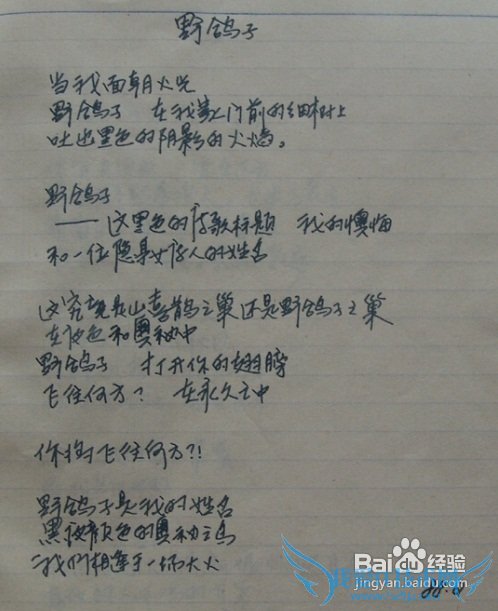 野鸽子
当我面朝火光
野鸽子 在我家门前的细树上
吐出黑色的阴影的火焰。
野鸽子
——这黑色的诗歌标题 我的懊悔
和一位隐身女诗人的姓名
这究竟是山喜鹊之巢还是野鸽子之巢
在夜色和奥秘中
野鸽子 打开你的翅膀
飞往何方? 在永久之中
你将飞往何方?!
野鸽子是我的姓名
黑夜颜色的奥秘之鸟
我们相逢于一场大火
Baidu百科经验
jingyan.baidu.com